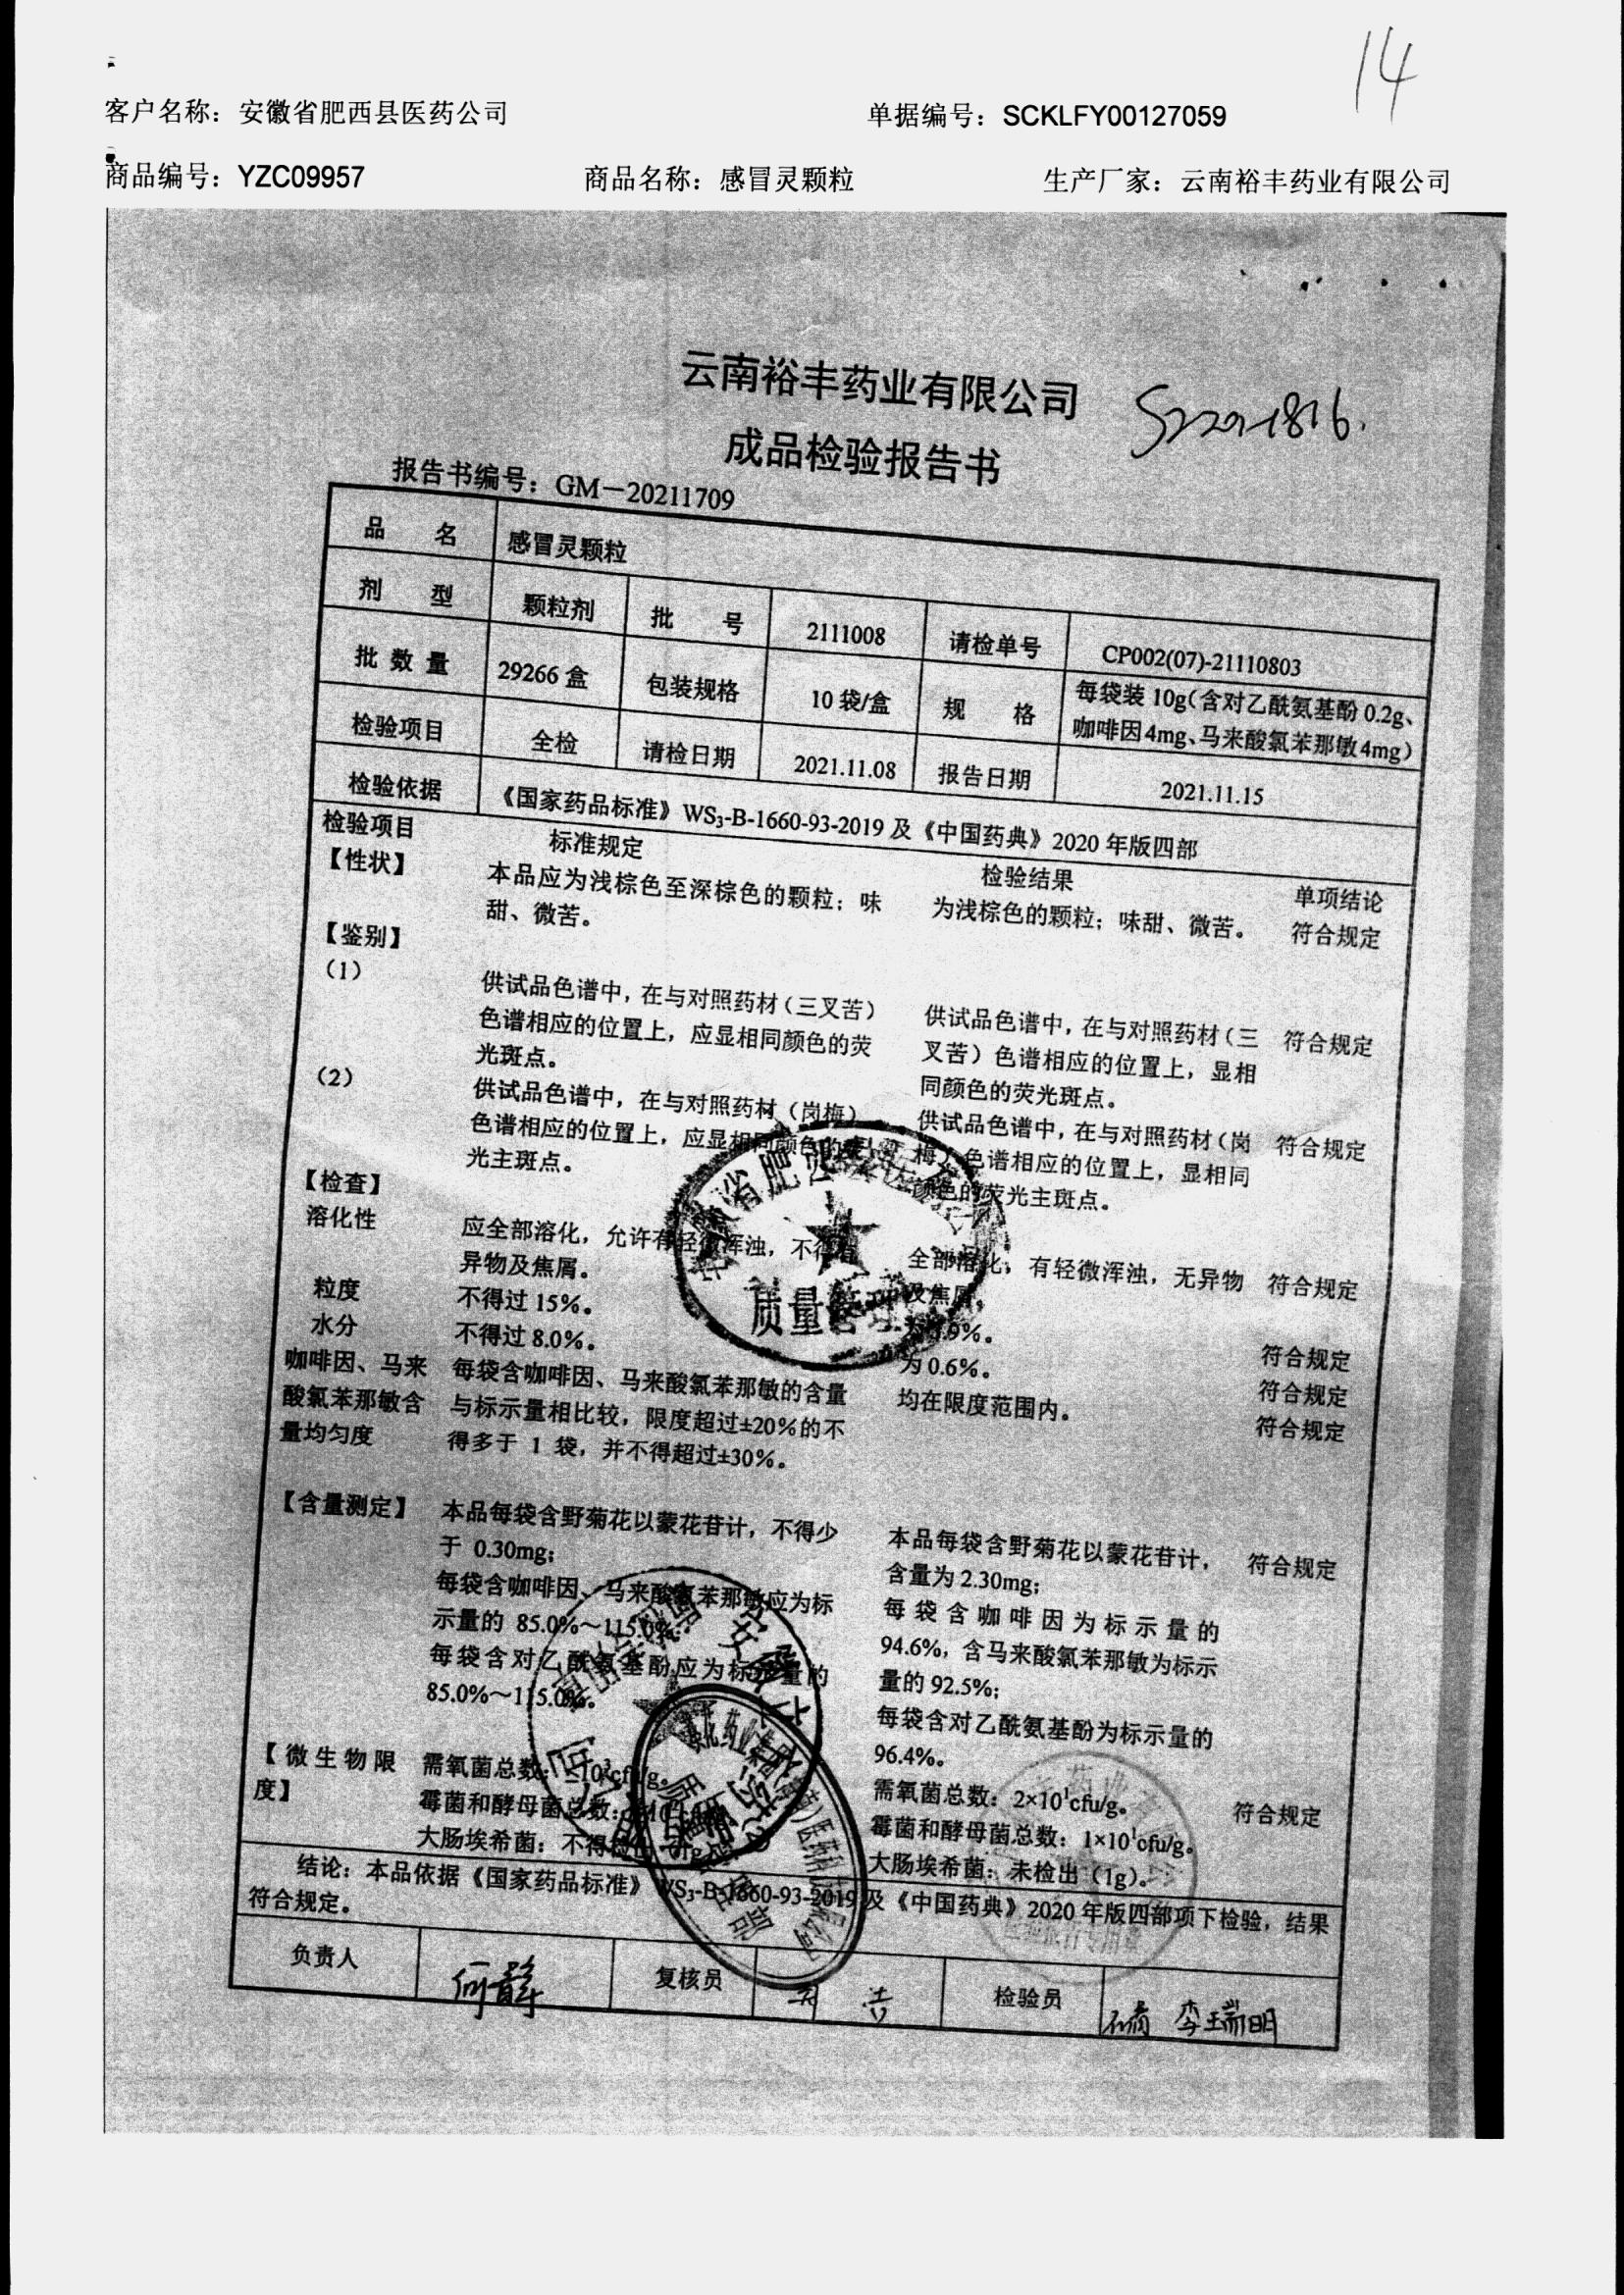 14
客户名称：安徽省肥西县医药公司 单据编号：SCKLFY00127059
商品编号：YZC09957 商品名称：感冒灵颗粒 生产厂家：云南裕丰药业有限公司
云南裕丰药业有限公司
成品检验报告书
报告书编号：GM－20211709
品 名 感冒灵颗粒
剂 型 颗粒剂 批 号 2111008 请检单号 CP002(07)-21110803
批 数 量 29266 盒 包装规格 10 袋/盒 规 格 每袋装 10g（含对乙酰氨基酚 0.2g、
咖啡因 4mg、马来酸氯苯那敏 4mg）
检验项目 全检 请检日期 2021.11.08 报告日期 2021.11.15
检验依据 《国家药品标准》WS₃-B-1660-93-2019 及《中国药典》2020 年版四部
检验项目 标准规定 检验结果 单项结论
【性状】 本品应为浅棕色至深棕色的颗粒；味 为浅棕色的颗粒；味甜、微苦。 符合规定
甜、微苦。
【鉴别】
（1） 供试品色谱中，在与对照药材（三叉苦） 供试品色谱中，在与对照药材（三 符合规定
色谱相应的位置上，应显相同颜色的荧 叉苦）色谱相应的位置上，显相
光斑点。 同颜色的荧光斑点。
（2） 供试品色谱中，在与对照药材（岗梅） 供试品色谱中，在与对照药材（岗 符合规定
色谱相应的位置上，应显相同颜色的 梅）色谱相应的位置上，显相同
光主斑点。 颜色的荧光主斑点。
【检查】
溶化性 应全部溶化，允许有轻微浑浊，不得有 全部溶化，有轻微浑浊，无异物 符合规定
异物及焦屑。 及焦屑。
粒度 不得过 15%。 9%。 符合规定
水分 不得过 8.0%。 为 0.6%。 符合规定
咖啡因、马来 每袋含咖啡因、马来酸氯苯那敏的含量 均在限度范围内。 符合规定
酸氯苯那敏含 与标示量相比较，限度超过±20%的不
量均匀度 得多于 1 袋，并不得超过±30%。
【含量测定】 本品每袋含野菊花以蒙花苷计，不得少 本品每袋含野菊花以蒙花苷计， 符合规定
于 0.30mg； 含量为 2.30mg；
每袋含咖啡因、马来酸氯苯那敏应为标 每袋含咖啡因为标示量的
示量的 85.0%～115.0%； 94.6%，含马来酸氯苯那敏为标示
每袋含对乙酰氨基酚应为标示量的 量的 92.5%；
85.0%～115.0%。 每袋含对乙酰氨基酚为标示量的
96.4%。
【微生物限 需氧菌总数： 需氧菌总数：2×10¹cfu/g。 符合规定
度】 霉菌和酵母菌总数： 霉菌和酵母菌总数：1×10¹cfu/g。
大肠埃希菌：不得检出 大肠埃希菌：未检出（1g）。
结论：本品依据《国家药品标准》WS₃-B-1660-93-2019 及《中国药典》2020 年版四部项下检验，结果
符合规定。
负责人 何静 复核员 检验员 李瑞明
质量管理